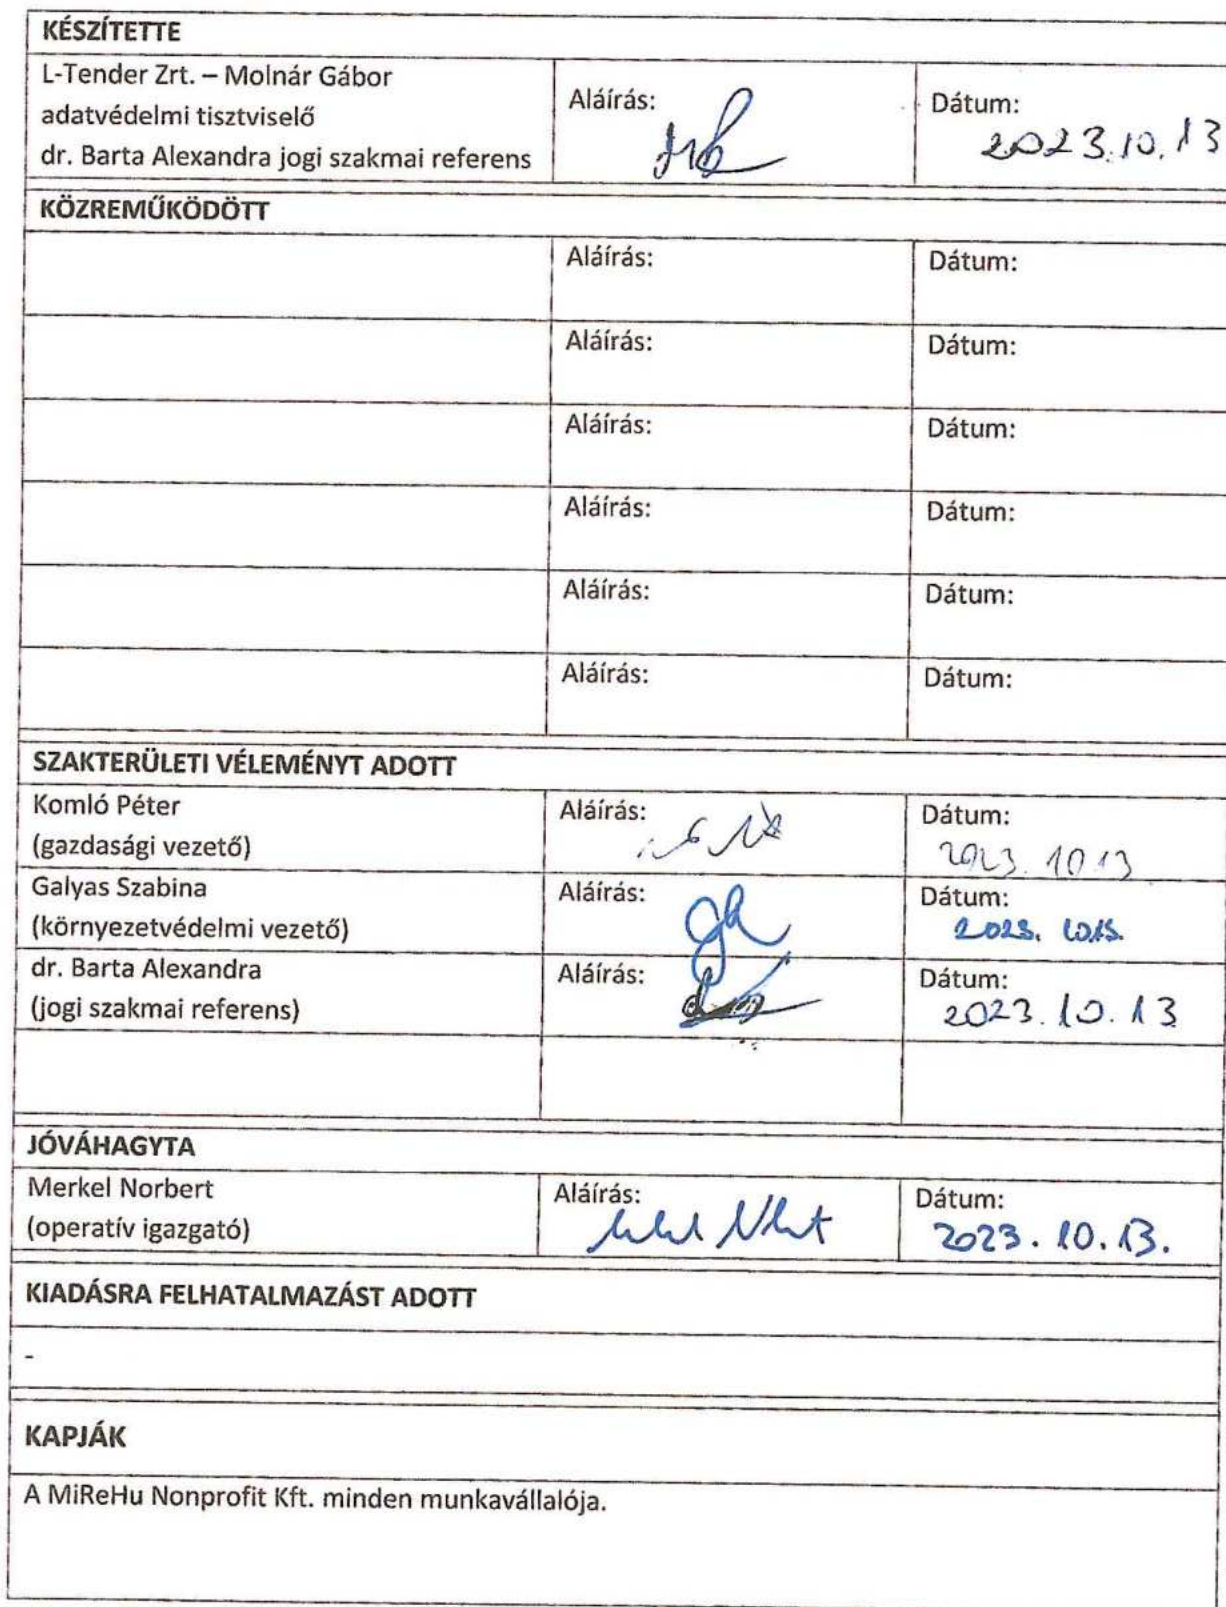 KÉSZÍTETTE
L-Tender Zrt. – Molnár Gábor
adatvédelmi tisztviselő
dr. Barta Alexandra jogi szakmai referens
Aláírás:
Dátum:
2023.10.13
KÖZREMŰKÖDÖTT
Aláírás:
Dátum:
Aláírás:
Dátum:
Aláírás:
Dátum:
Aláírás:
Dátum:
Aláírás:
Dátum:
Aláírás:
Dátum:
SZAKTERÜLETI VÉLEMÉNYT ADOTT
Komló Péter
(gazdasági vezető)
Aláírás:
Dátum:
2023.10.13
Galyas Szabina
(környezetvédelmi vezető)
Aláírás:
Dátum:
2023.
dr. Barta Alexandra
(jogi szakmai referens)
Aláírás:
Dátum:
2023.10.13
JÓVÁHAGYTA
Merkel Norbert
(operatív igazgató)
Aláírás:
Dátum:
2023.10.13.
KIADÁSRA FELHATALMAZÁST ADOTT
-
KAPJÁK
A MiReHu Nonprofit Kft. minden munkavállalója.